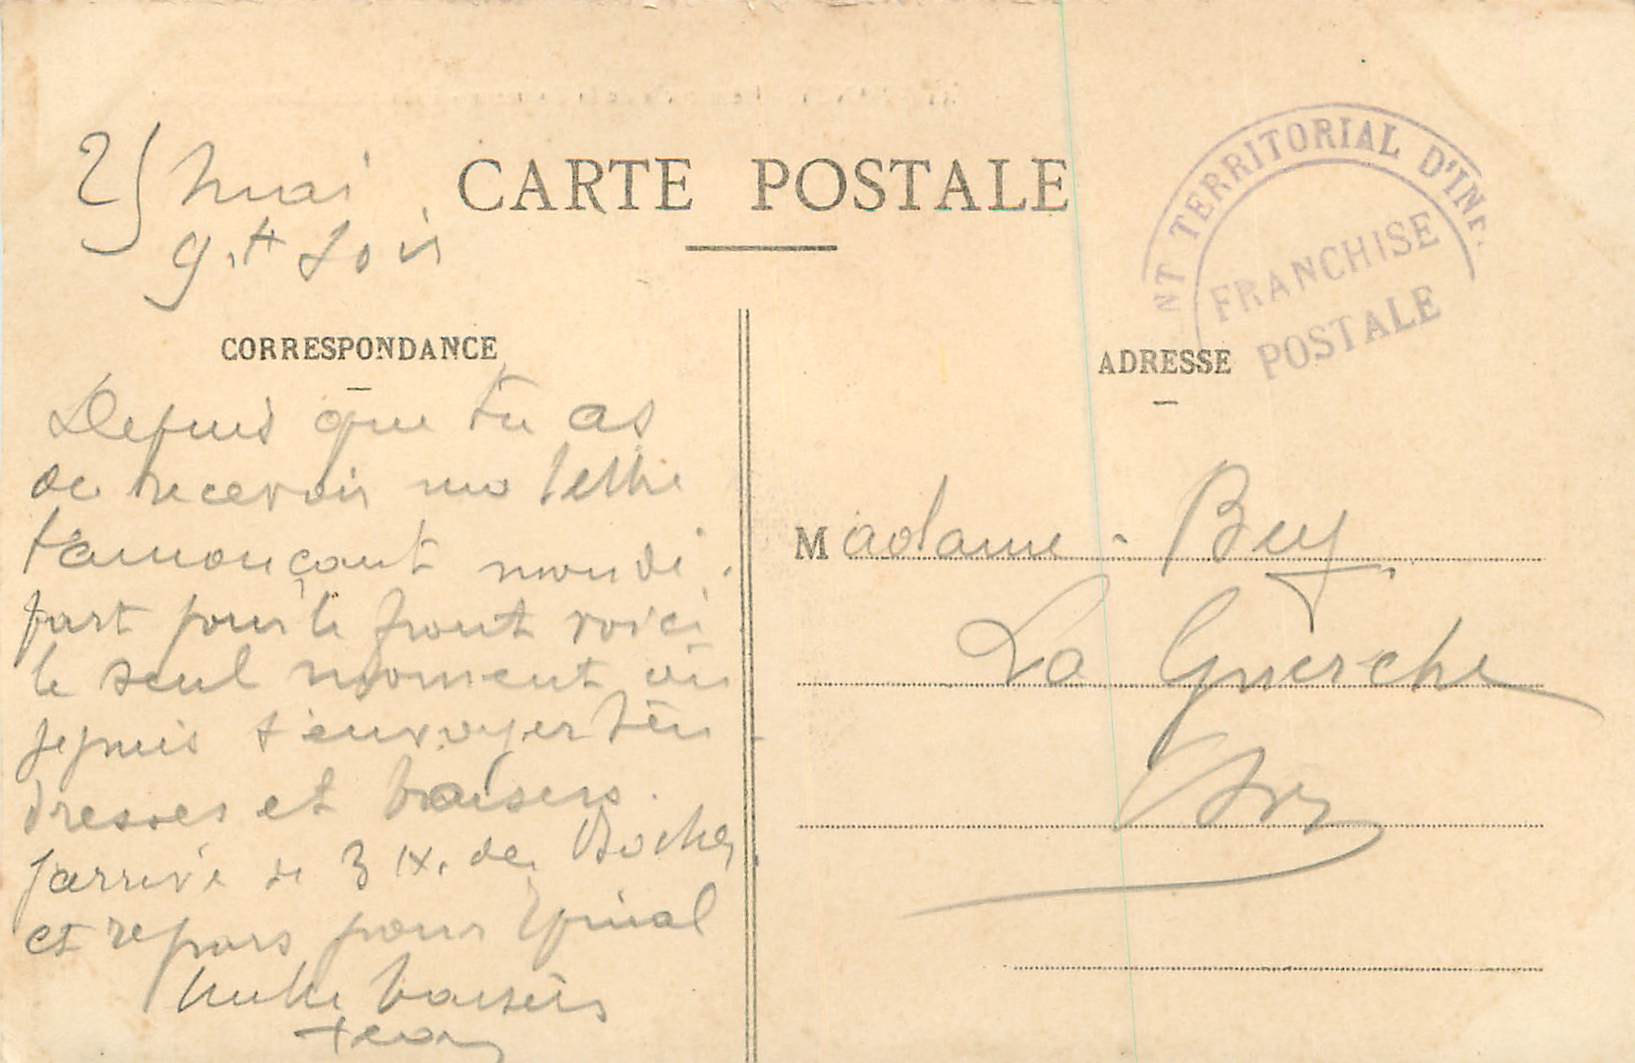 25 mai
9.H soir
CARTE POSTALE
NT TERRITORIAL D'INF.
FRANCHISE
POSTALE
CORRESPONDANCE
Depuis que tu as
de recevoir ma lettre
t'amonçant mon di.
part pour le front voici
le seul moment où
je puis t'envoyer ten
dresses et baisers.
J'arrive de 3 de
et repars pour Epinal
baisers
ADRESSE
Madame - Buy
La Guerche